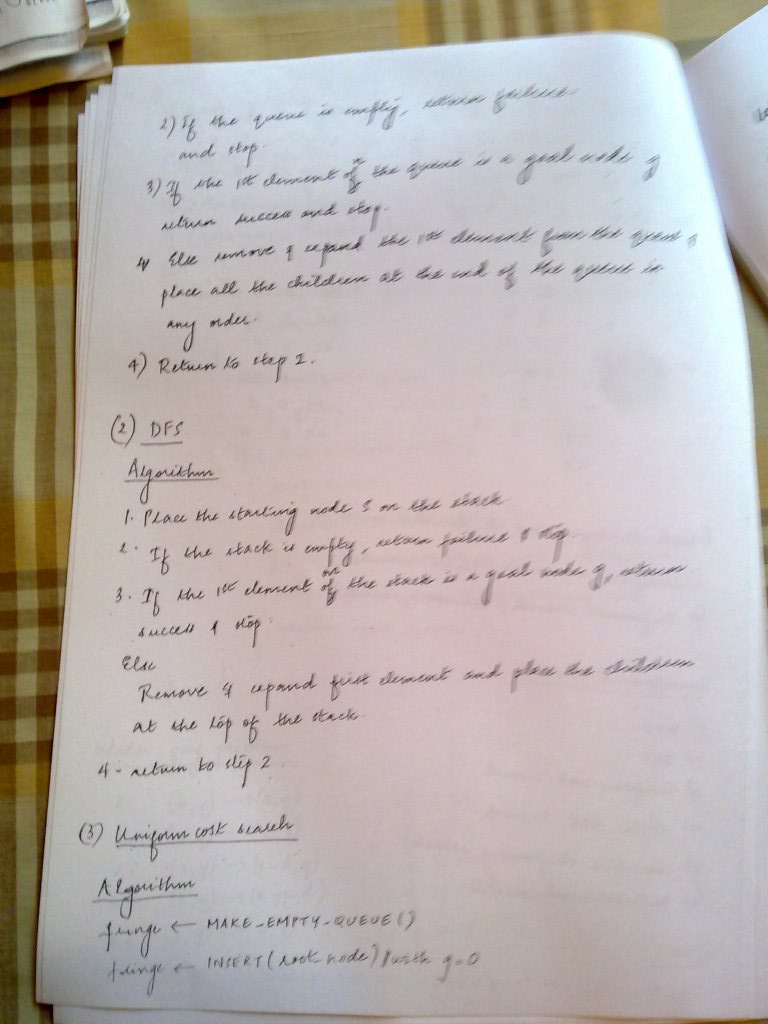 2) If the queue is empty, return failure
and stop.
3) If the 1st element of on the queue is a goal node g
return success and stop.
Else remove & expand the 1st element from the queue &
place all the children at the end of the queue in
any order.
4) Return to step 2.
(2) DFS
Algorithm
1. Place the starting node S on the stack
2. If the stack is empty, return failure & stop
3. If the 1st element of on the stack is a goal node g, return
success & stop.
Else
Remove & expand first element and place the children
at the top of the stack.
4 - return to step 2.
(3) Uniform cost search
Algorithm
fringe ← MAKE_EMPTY_QUEUE()
fringe ← INSERT(root_node) // with g=0